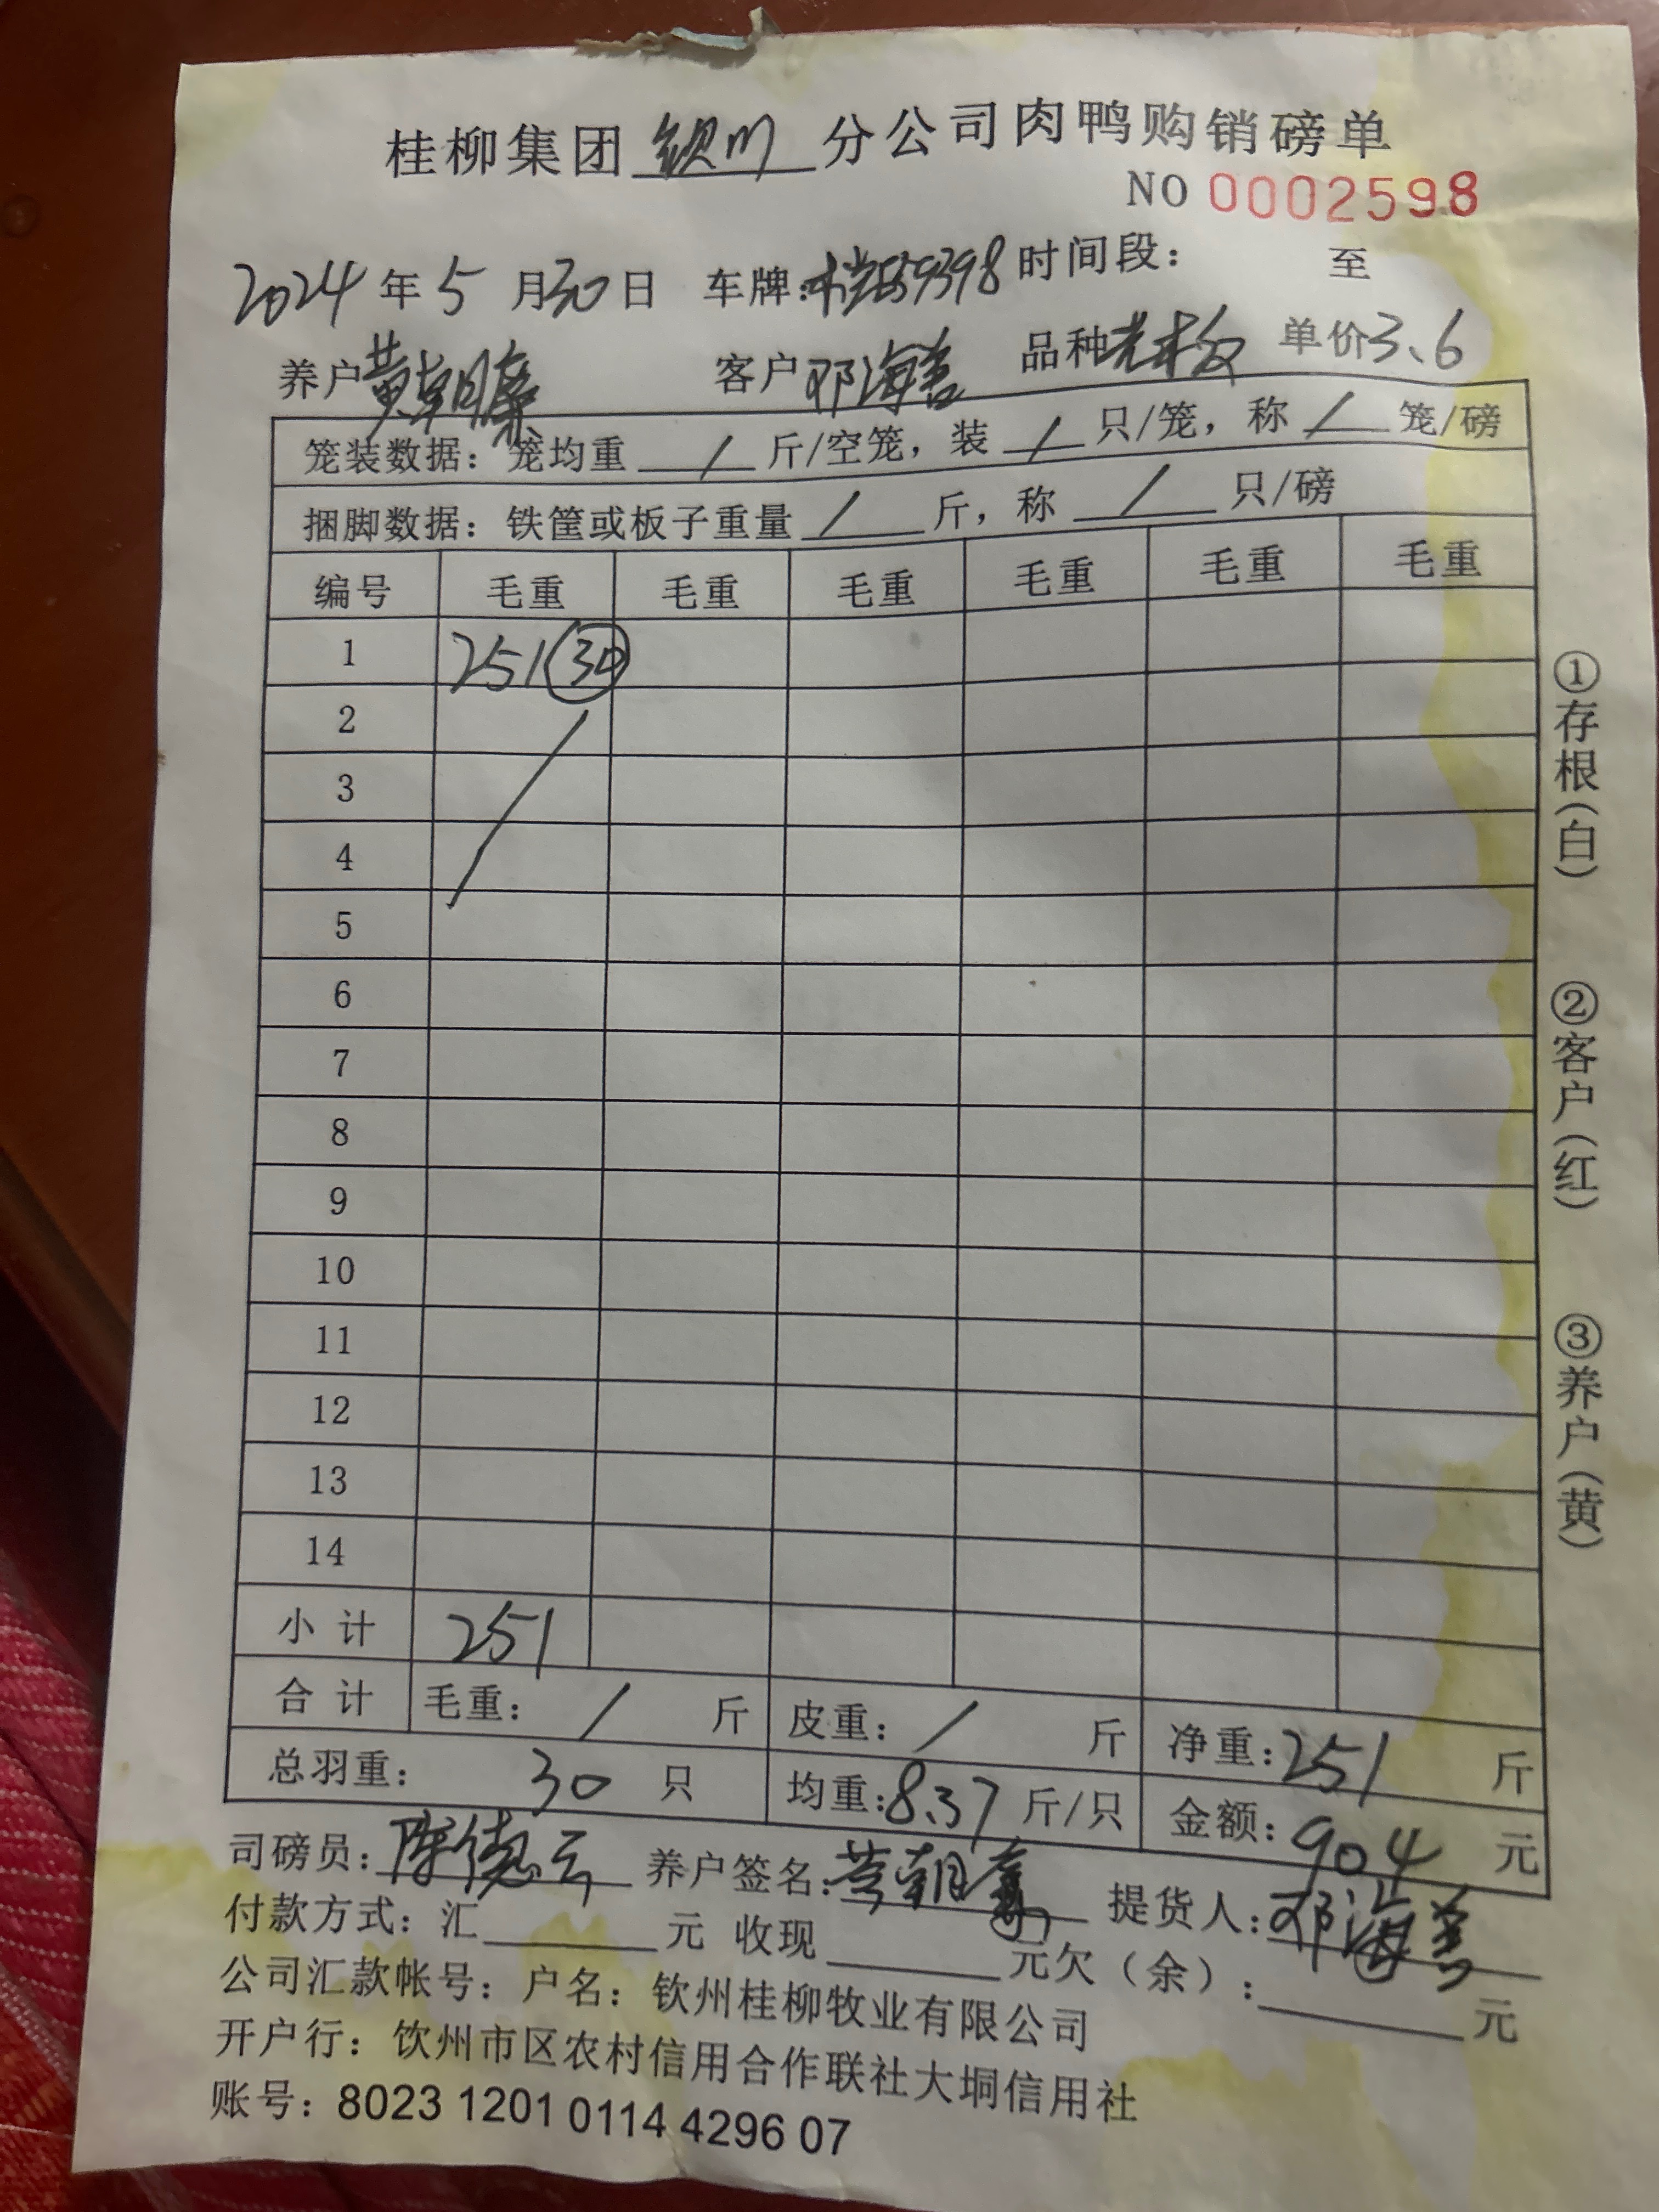 桂柳集团 钦州 分公司肉鸭购销磅单
NO 0002598
2024 年 5 月 30 日 车牌: 59398 时间段: 至
养户 黄朝 客户 邓海善 品种 单价 3.6
笼装数据: 笼均重 / 斤/空笼, 装 / 只/笼, 称 / 笼/磅
捆脚数据: 铁筐或板子重量 / 斤, 称 / 只/磅
编号 毛重 毛重 毛重 毛重 毛重 毛重
1 251 30
2
3
4
5
6
7
8
9
10
11
12
13
14
小计 251
合计 毛重: / 斤 皮重: / 斤 净重: 251 斤
总羽重: 30 只 均重: 8.37 斤/只 金额: 904 元
司磅员: 陈德云 养户签名: 黄朝 提货人: 邓海善
付款方式: 汇 元 收现 元欠(余): 元
公司汇款帐号: 户名: 钦州桂柳牧业有限公司
开户行: 钦州市区农村信用合作联社大垌信用社
账号: 8023 1201 0114 4296 07
①存根(白) ②客户(红) ③养户(黄)